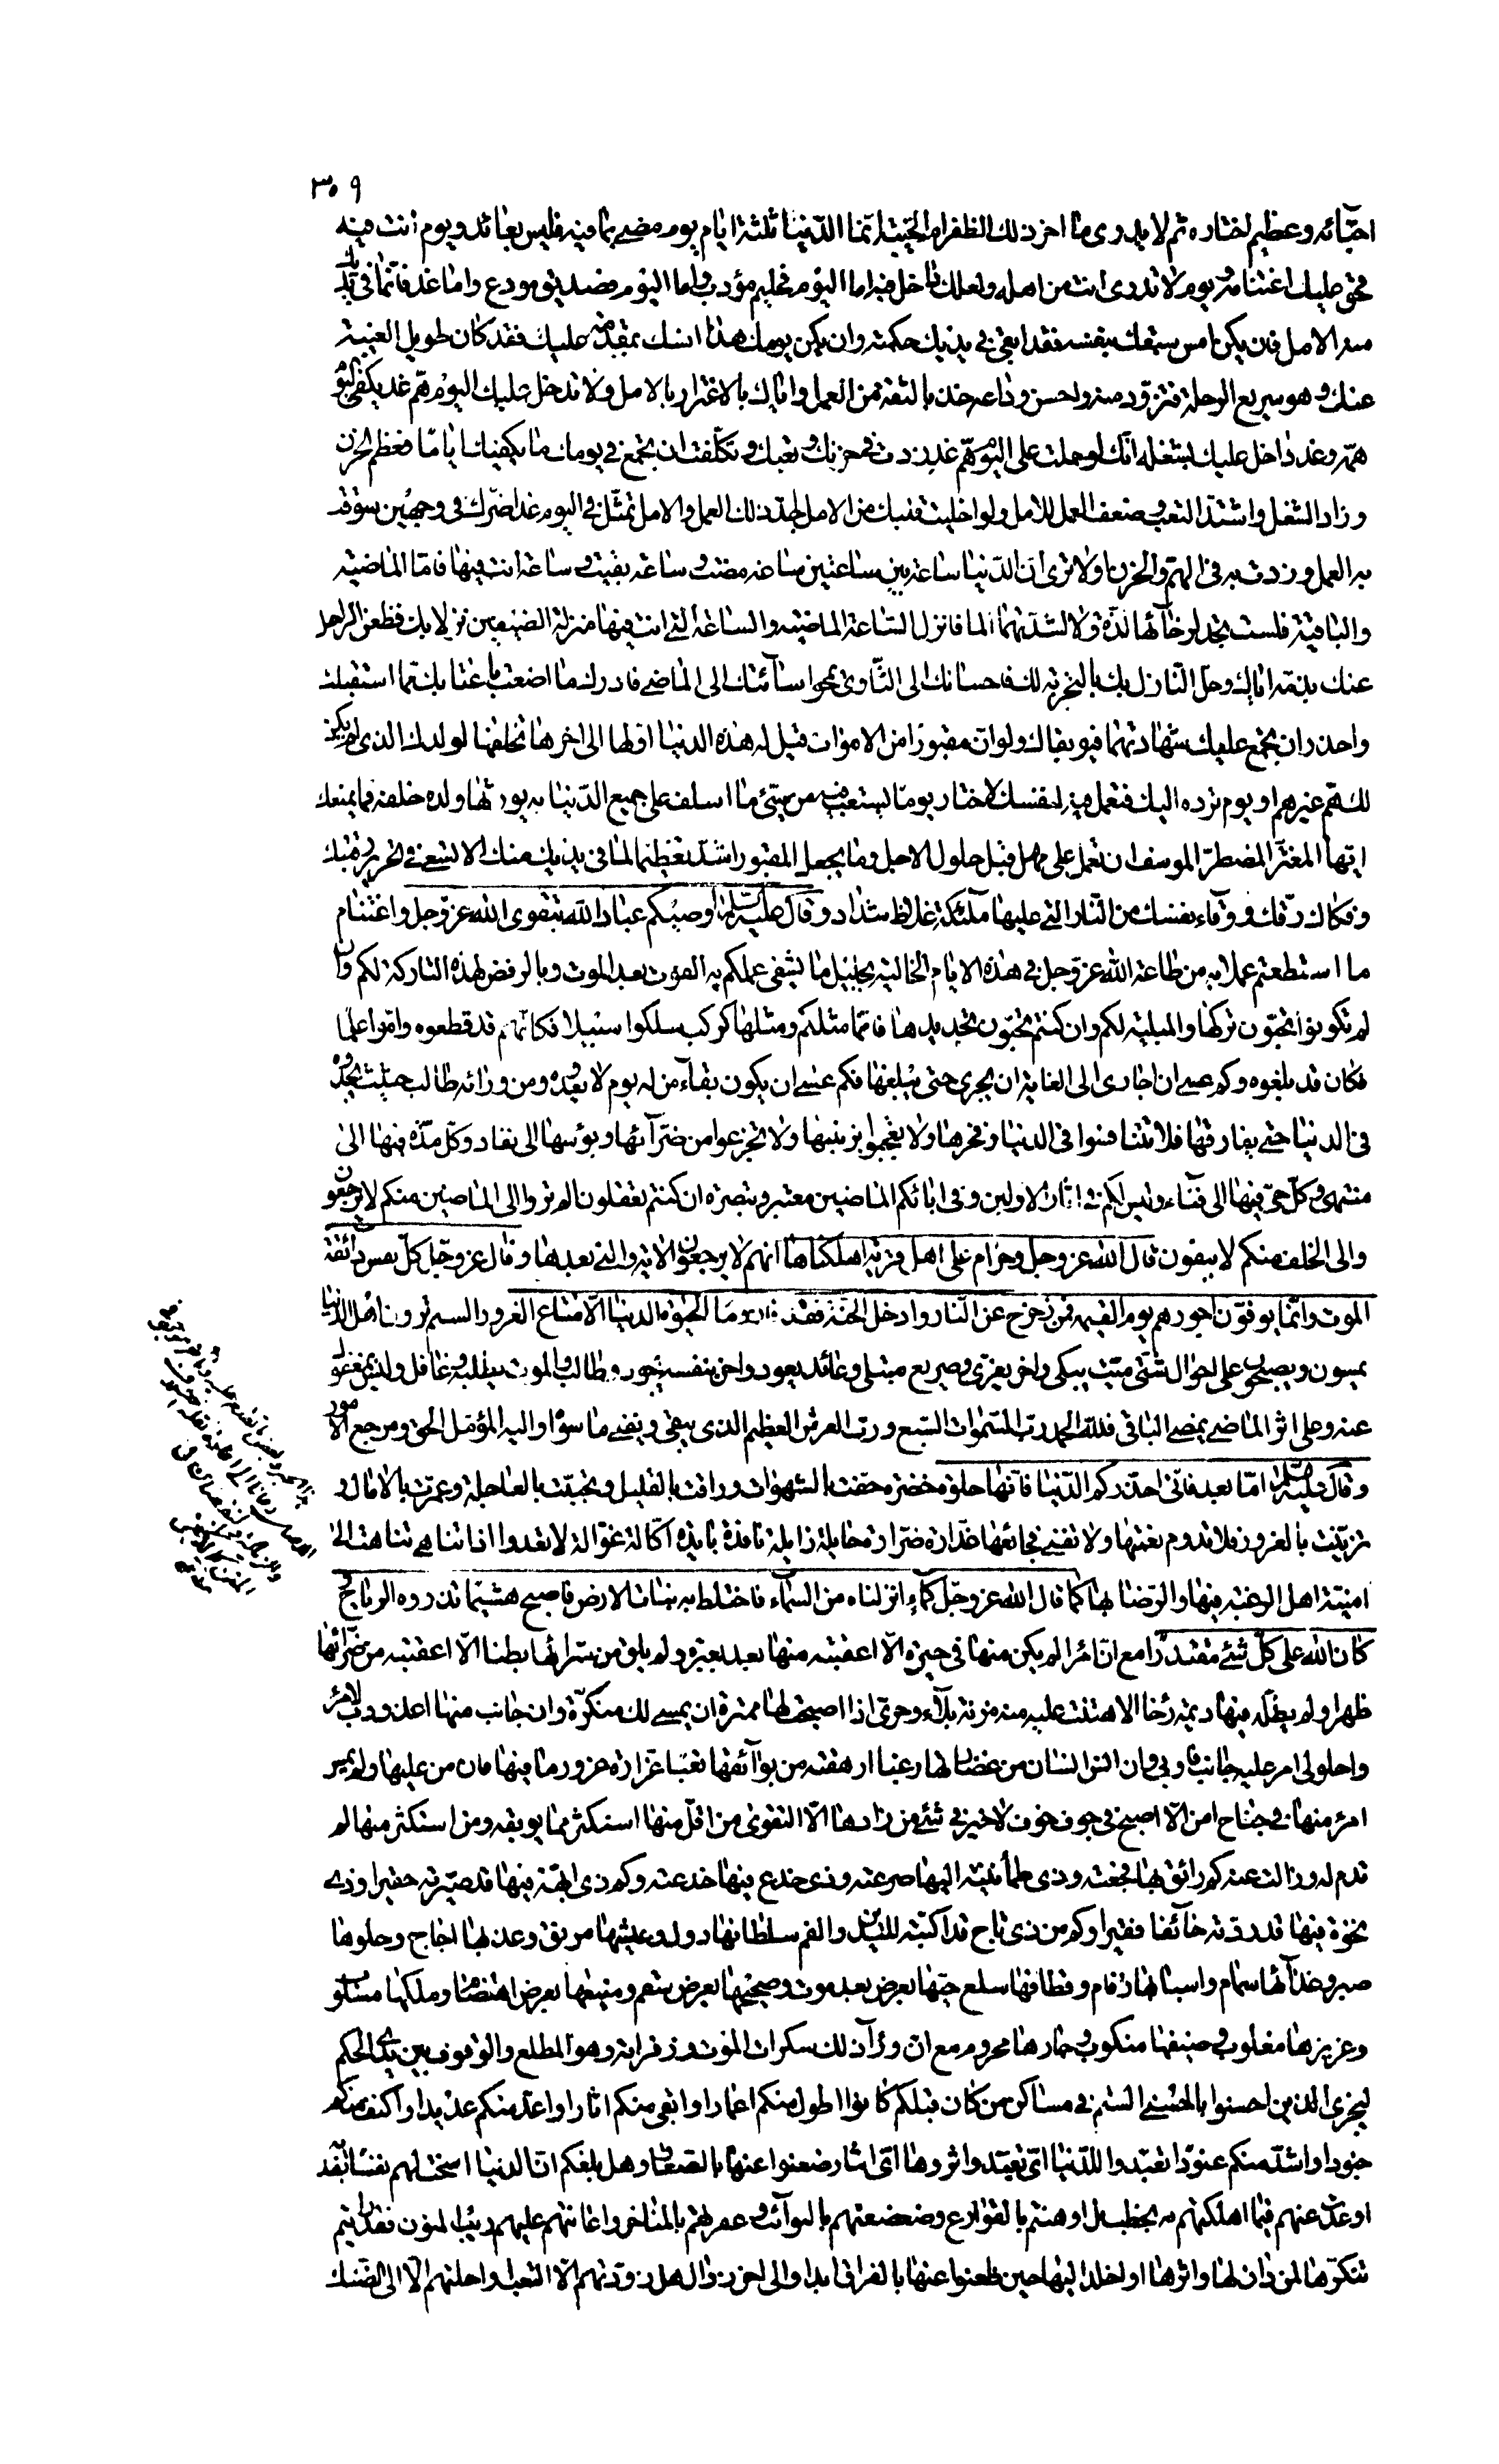 ٣٠٩
احبّائه وعظيم اختاره ثم لا يدرى ما اخر ذلك الظفر ام الخيبة انّما الدّنيا ثلثة ايّام يوم مضى بما فيه فليس بعائد ويوم انت فيه
فحق عليك اغتنامه ويوم لا تدرى انت من اهله ولعلك راحل فيه اما اليوم فحكيم مؤدب واما اليوم فصديق مودع واما غد فانّما فى يديك
منه الامل فان يكن امس سبقك بنفسه فقد ابقى فى يديك حكمته وان يكن يومك هذا انسك بمقدمه عليك فقد كان طويل الغيبة
عنك وهو سريع الرحلة فتزوّد منه واحسن وداعه خذ بالثقة من العمل واياك بالاغترار بالامل ولا تدخل عليك اليوم همّ غد يكفى اليوم
همّه وغد داخل عليك بشغله انّك لو حملت على اليوم همّ غد زدت فى حزنك وتعبك وتكلّفت ان تجمع فى يومك ما يكفيك ايّاما فعظم الحزن
وزاد الشغل واشتدّ التعب وضعف العمل للامل ولو اخليت قلبك من الامل لجدّ ذلك العمل والامل تمثّل فى اليوم غدا ضرّك فى وجهين سوّفت
به العمل وزدت به فى الهمّ والحزن اولا ترى انّ الدّنيا ساعة بين ساعتين ساعة مضت وساعة بقيت وساعة انت فيها فامّا الماضية
والباقية فلست تجد لرخائها لذّة ولا لشدّتهما الما فانزل السّاعة الماضية والساعة التى انت فيها منزلة الضيفين نزلا بك فظعن الراحل
عنك بذمّه اياك وحلّ النازل بك بالتجربة لك فاحسانك الى الثّاوى يمحو اسائتك الى الماضى فادرك ما اضعت باعتابك مما استقبلت
واحذر ان يجمع عليك شهادتهما فيوبقاك ولو انّ مقبورا من الاموات قيل له هذه الدنيا اوّلها الى اخرها تخلفها لولدك الذى لم يكن
لك همّ غيرهم او يوم نردّه اليك فتعمل فيه لنفسك لاختار يوما يستعتب فيه من سيّئ ما اسلف على جميع الدّنيا به يورثها ولده خلفه فما يمنعك
ايّها المغترّ المضطرّ المسوف ان تعمل على مهل قبل حلول الاجل وما يجعل المقبور اشدّ تعظيما لما فى يديك منك الا تسعى فى تحرير رقبتك
وفكاك رقّك ووقاء نفسك من النّار التى عليها ملائكة غلاظ شداد وقال عليه السّلم اوصيكم عباد اللّه بتقوى اللّه عزّ وجل واغتنام
ما استطعتم عملا به من طاعة اللّه عزّ وجل فى هذه الايام الخالية بجليل ما يشفى عملكم به الفوت بعد الموت وبالرفض لهذه التاركة لكم وان
لم تكونوا تحبّون تركها والمبلية لكم وان كنتم تحبّون تجديدها فانّما مثلكم ومثلها كركب سلكوا سبيلا فكانّهم قد قطعوه وامّوا علما
فكان قد بلغوه وكم عسى ان جارى الى الغاية ان يجرى حتى يبلغها فكم عسى ان يكون بقاء من له يوم لا يعدوه ومن ورائه طالب حثيث يحدوه
فى الدنيا حتى يفارقها فلا تتنافسوا فى الدنيا وفخرها ولا تعجبوا بزينتها ولا تجزعوا من ضرّائها وبؤسها الى نفاد وكلّ مدّة فيها الى
منتهى وكلّ حىّ فيها الى فناء وليس لكم فى اثار الاولين وفى ابائكم الماضيين معتبر وتبصرة ان كنتم تعقلون الم تروا الى الماضين منكم لا يرجعون
والى الخلف منكم لا يبقون قال اللّه عزّ وجل وحرام على اهل قرية اهلكناها انهم لا يرجعون الاية والتى بعدها وقال عزّ وجل كلّ نفس ذائقة
الموت وانّما يوفّون اجورهم يوم القيمة فمن زحزح عن النّار وادخل الجنّة فقد فاز وما الحيوة الدنيا الّا متاع الغرور الستم ترون اهل الدنيا
يمسون ويصبحون على احوال شتّى ميّت يبكى واخر يعزّى وصريع مبتلى وعائد يعود واخر بنفسه يجود وطالب والموت يطلبه وغافل وليس بمغفول
عنه وعلى اثر الماضى يمضى الباقى فللّه الحمد ربّ السّموات السّبع وربّ العرش العظيم الذى يبقى ويفنى ما سواه واليه المؤمّل الحق ومرجع الامور
وقال عليه السّلم امّا بعد فانّى احذّركم الدّنيا فانّها حلوة خضرة حفّت بالشهوات وراقت بالقليل وتحببّت بالعاجلة وعمرت بالامال و
تزيّنت بالغرور فلا تدوم نعمتها ولا تفنى فجائعها غدّارة ضرّارة حايلة زايلة نافذة بايدة اكّالة غوّالة لا تعدوا اذا تناهت الى
امنيّة اهل الرغبة فيها والرّضا بها كما قال اللّه عزّ وجلّ كماء انزلناه من السّماء فاختلط به نبات الارض فاصبح هشيما تذروه الرياح
كان اللّه على كلّ شىء مقتدرا مع انّ امرا لم يكن منها فى حبرة الّا اعقبته منها بعد بعبرة ولم يلق من سرّائها بطنا الّا اعقبته من ضرّائها
ظهرا ولم يطلّه فيها ديمة رخا الا هتنت عليه منه مزنة بلاء وحرى اذا اصبحت لها ممترة ان يمسى لك منكرة وان جانب منها اعذوذب لامرئ
واحلولى امرّ عليه جانب واوبى وان
امرء منها فى جناح امن الّا اصبح فى جوف خوف لا خير فى شىء من زادها الّا التقوى من اقلّ منها استكثر مما يوبقه ومن استكثر منها لم
تدم له وزالت عنه كم واثق بها فجعته وذى طمأنينة اليها صرعته وذى خدع فيها خدعته وكم ذى ابهّة فيها قد صيّرته حقيرا وذى
نخوة فيها قد ردّته خائفا فقيرا وكم من ذى تاج قد اكبّته لليدين والفم سلطانها دول وعيشها مرنق وعذبها اجاج وحلوها
صبر وغذائها سمام واسبابها رمام وقطافها سلع حيّها بعرض بعد موت وصحيحها بعرض سقم ومنيعها بعرض اهتضام وملكها مسلوب
وعزيزها مغلوب وضيفها منكوب وجارها محروم مع انّ وراء ذلك سكرات الموت وزفراته وهو المطلع والوقوف بين يدى الحكم
ليجزى الذين احسنوا بالحسنى الستم فى مساكن من كان قبلكم كانوا اطول منكم اعمارا وابقى منكم اثارا واعدّ منكم عديدا واكنف منكم
جنودا واشدّ منكم عنودا تعبّدوا للدّنيا اىّ تعبّد واثروها اىّ ايثار ضعنوا عنها بالصغار وهل بلغكم انّ الدنيا اسخت لهم نفسا بفدية
او عدّت عنهم فيما اهلكتهم به بخطب بل اوهنتهم بالقوارع وضعضعتهم بالنوائب وعفرتهم بالمناخر واعانتهم عليهم ريب المنون فقد رايتم
تنكّرها لمن دان لها واثرها او اخلد اليها حين ظعنوا عنها بالفراق ابدا والى اخر زوال هل زوّدتهم الّا التعب او احلتهم الّا الى الضنك